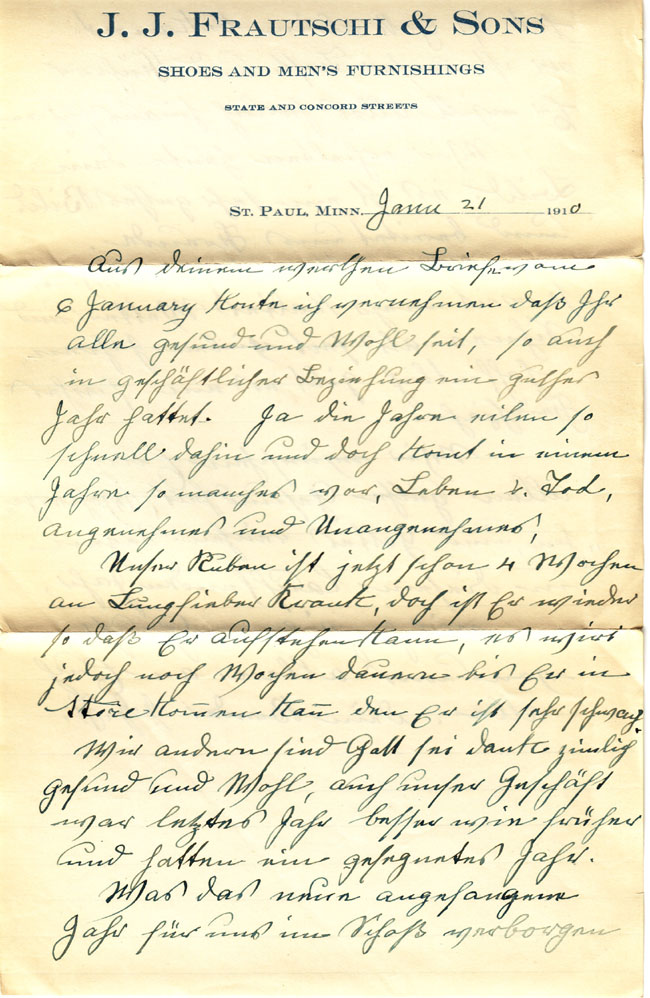 J. J. FRAUTSCHI & SONS
SHOES AND MEN'S FURNISHINGS
STATE AND CONCORD STREETS
ST. PAUL, MINN. Janu 21 1910
Aus deinem werthen Briefe vom
6 January konte ich vernehmen daß Ihr
alle gesund und Wohl seit, so auch
in geschäftlicher Beziehung ein guthes
Jahr hattet. Ja die Jahre eilen so
schnell dahin und doch komt in einem
Jahre so manches vor, Leben u. Tod,
angenehmes und Unangenehmes,
Unser Ruben ist jetzt schon 4 Wochen
an Lungfieber Krank, doch ist Er wieder
so daß Er aufstehen kann, es wird
jedoch noch Wochen dauern bis Er in
Store kom̄en kan̄ den Er ist sehr schwach.
Wir andern sind Gott sei dank zimlich
gesund und Wohl, auch unser Geschäft
war letztes Jahr besser wie früher
und hatten ein gesegnetes Jahr.
Was das neue angefangene
Jahr für uns im Schoß verborgen